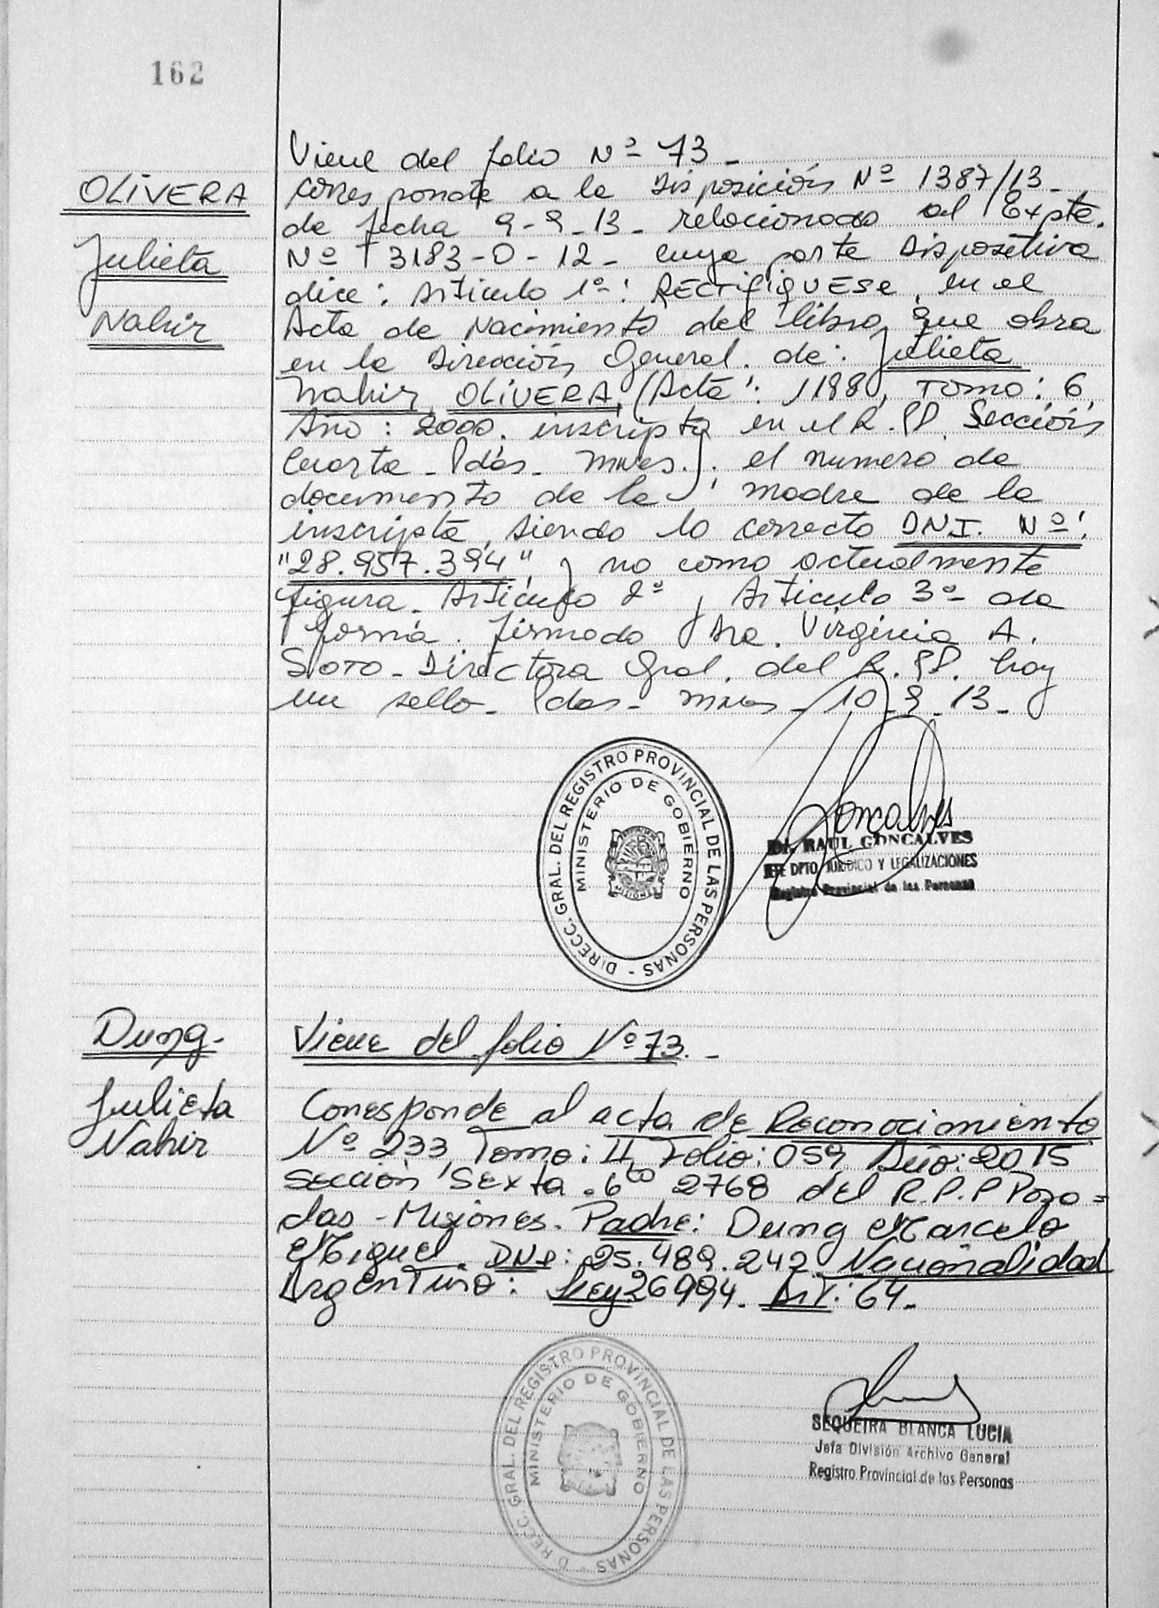 162
OLIVERA
Julieta
Nahir
Viene del folio Nº 73.-
Corresponde a la Disposición Nº 1387/13.
de fecha 9-9-13- relacionado al Expte.
Nº 3183-O-12- cuya parte Dispositiva
dice: Articulo 1º: RECTIFIQUESE, en el
Acta de Nacimiento del libro que obra
en la Dirección General. de: Julieta
Nahir OLIVERA (Acta: 1198, TOMO: 6,
Año: 2000. inscripta en el R.PP. Sección
Cuarta- Pdas- Mnes.). el numero de
documento de la madre de la
inscripta, siendo lo correcto DNI. Nº:
"28.957.394" y no como actualmente
figura- Articulo 2º, Articulo 3º de
forma. firmado Dra. Virginia A.
SOTO- Directora Gral. del R.PP. hay
un sello- Pdas- Mnes- 10-9-13-
DIRECC. GRAL. DEL REGISTRO PROVINCIAL DE LAS PERSONAS -
MINISTERIO DE GOBIERNO
MISIONES
Goncalves
Dr. RAUL GONCALVES
JEFE DPTO. JURIDICO Y LEGALIZACIONES
Registro Provincial de las Personas
Dung-
Julieta
Nahir
Viene del folio Nº 73.-
Corresponde al acta de Reconocimiento
Nº 233 Tomo: II Folio: 059 Año: 2015
Sección Sexta. 6ta 2768 del R.P.P Posa=
das - Misiones. Padre: Dung Marcelo
Miguel DNI: 25.489.242 Nacionalidad
Argentino: Ley 26994. Art: 64.
DIRECC. GRAL. DEL REGISTRO PROVINCIAL DE LAS PERSONAS -
MINISTERIO DE GOBIERNO
SEQUEIRA BLANCA LUCIA
Jefa División Archivo General
Registro Provincial de las Personas